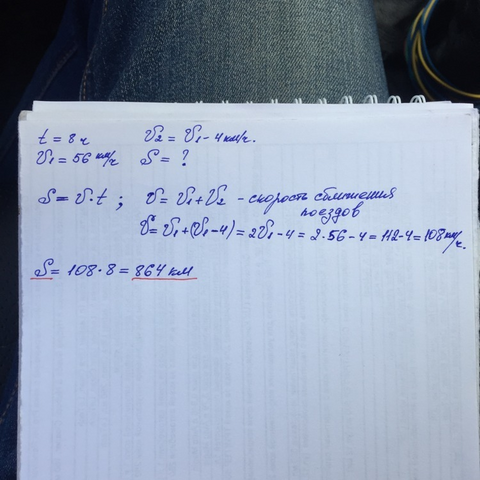 t = 8 ч V2 = V1 - 4 км/ч.
V1 = 56 км/ч S = ?
S = V·t ; V = V1 + V2 - скорость сближения
поездов
V = V1 + (V1 - 4) = 2V1 - 4 = 2·56 - 4 = 112 - 4 = 108 км/ч.
S = 108·8 = 864 км